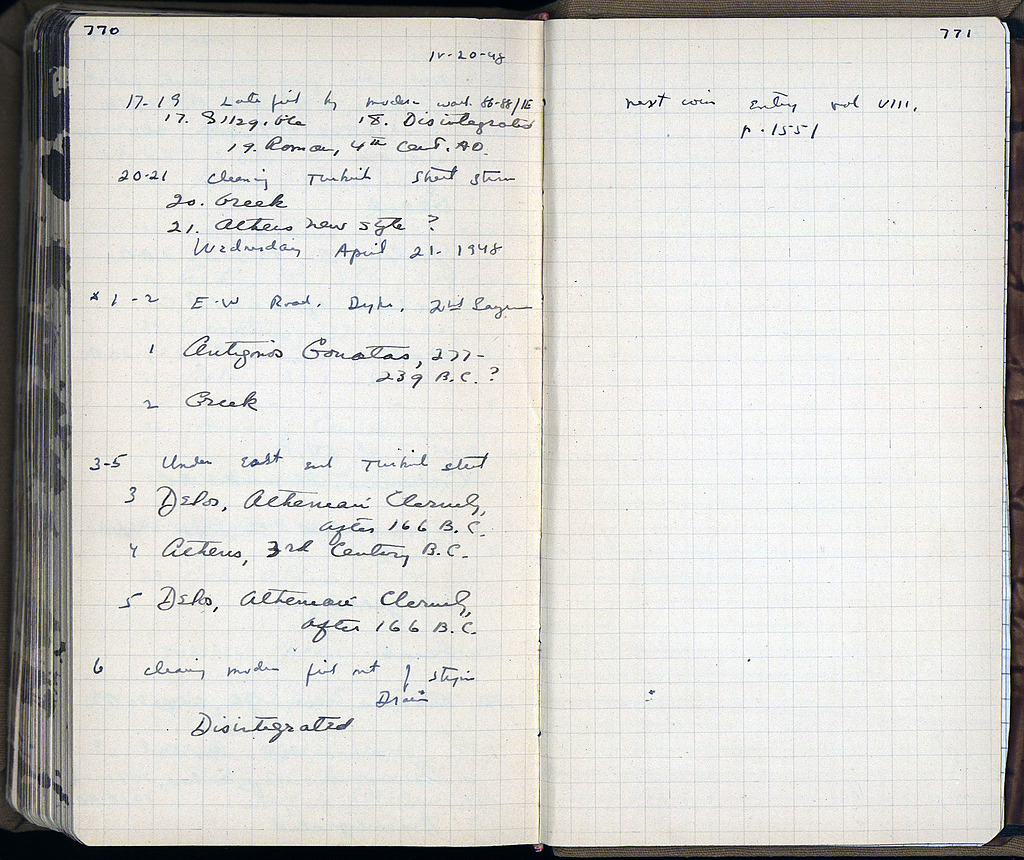 770
IV-20-48
17-19 Late fill by modern wall 86-88/IE
17. Illegible 18. Disintegrated
19. Roman, 4th Cent. AD.
20-21 cleaning Turkish Street
20. Greek
21. Athens new style ?
Wednesday April 21. 1948
* 1-2 E-W Road. Dyke,
1 Antigonos Gonatas, 277-
239 B.C. ?
2 Greek
3-5 Under East end Turkish street
3 Delos, Athenian Cleruchy,
after 166 B.C.
4 Athens, 3rd Century B.C.
5 Delos, Athenian Cleruchy,
after 166 B.C.
6 cleaning modern fill out of
Drain
Disintegrated
771
next coin entry vol VIII,
p. 1551